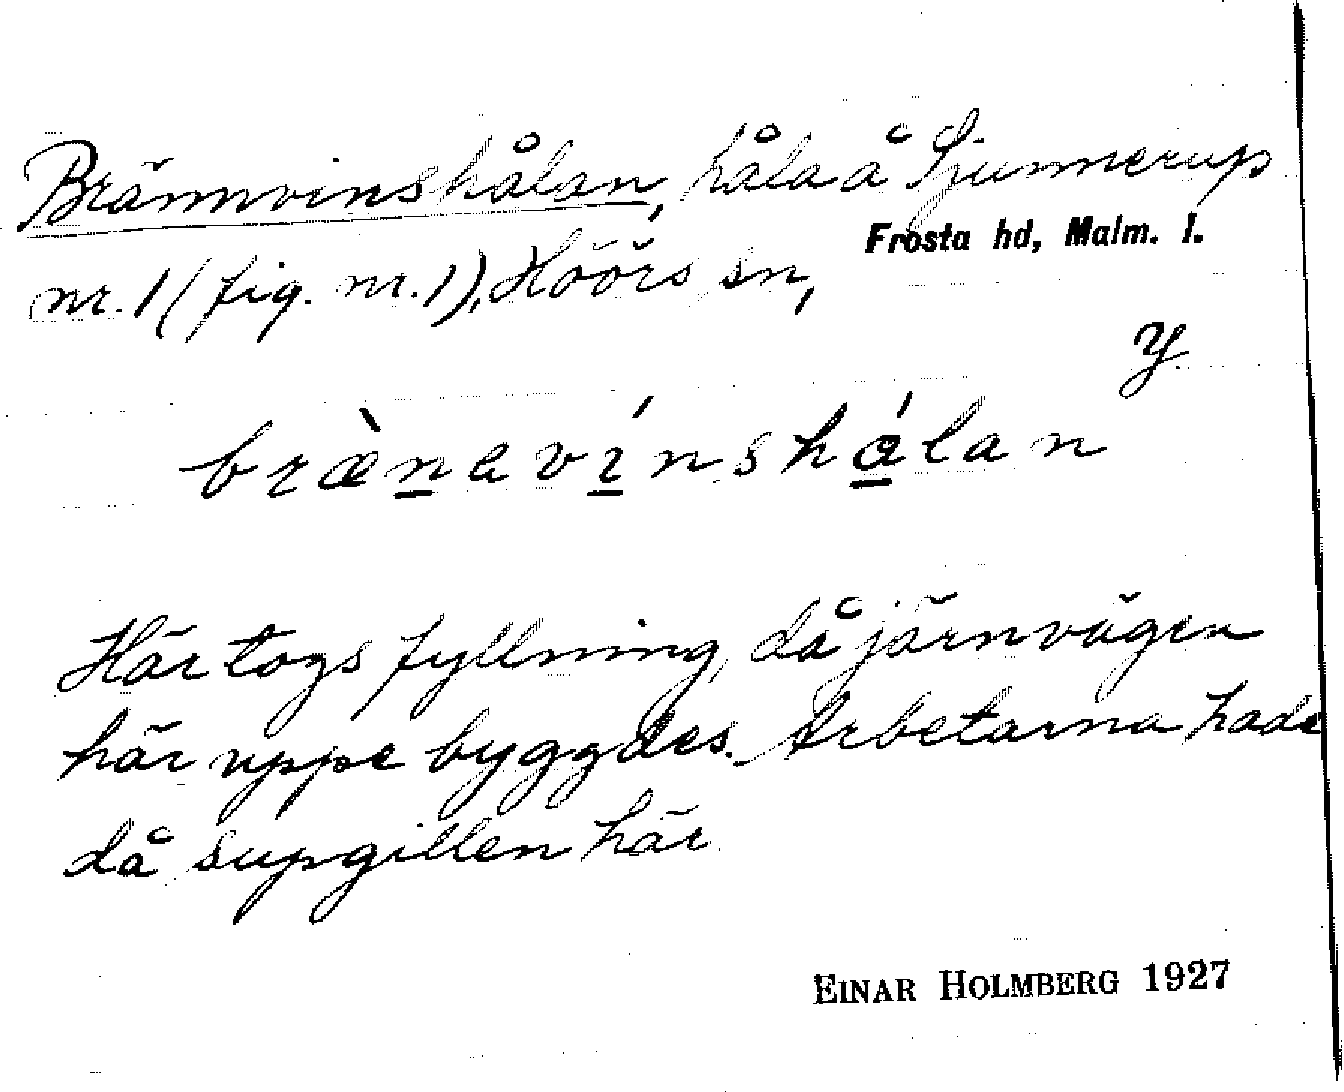 Brännvinshålan, håla å Sjunnerup
Frosta hd, Malm. l.
nr. 1 (fig. nr. 1), Höörs sn,
y
bræ̀n̲aví̲nshá̲lan
Här togs fyllning, då järnvägen
här uppe byggdes. Arbetarna hade
då supgillen här.
EINAR HOLMBERG 1927